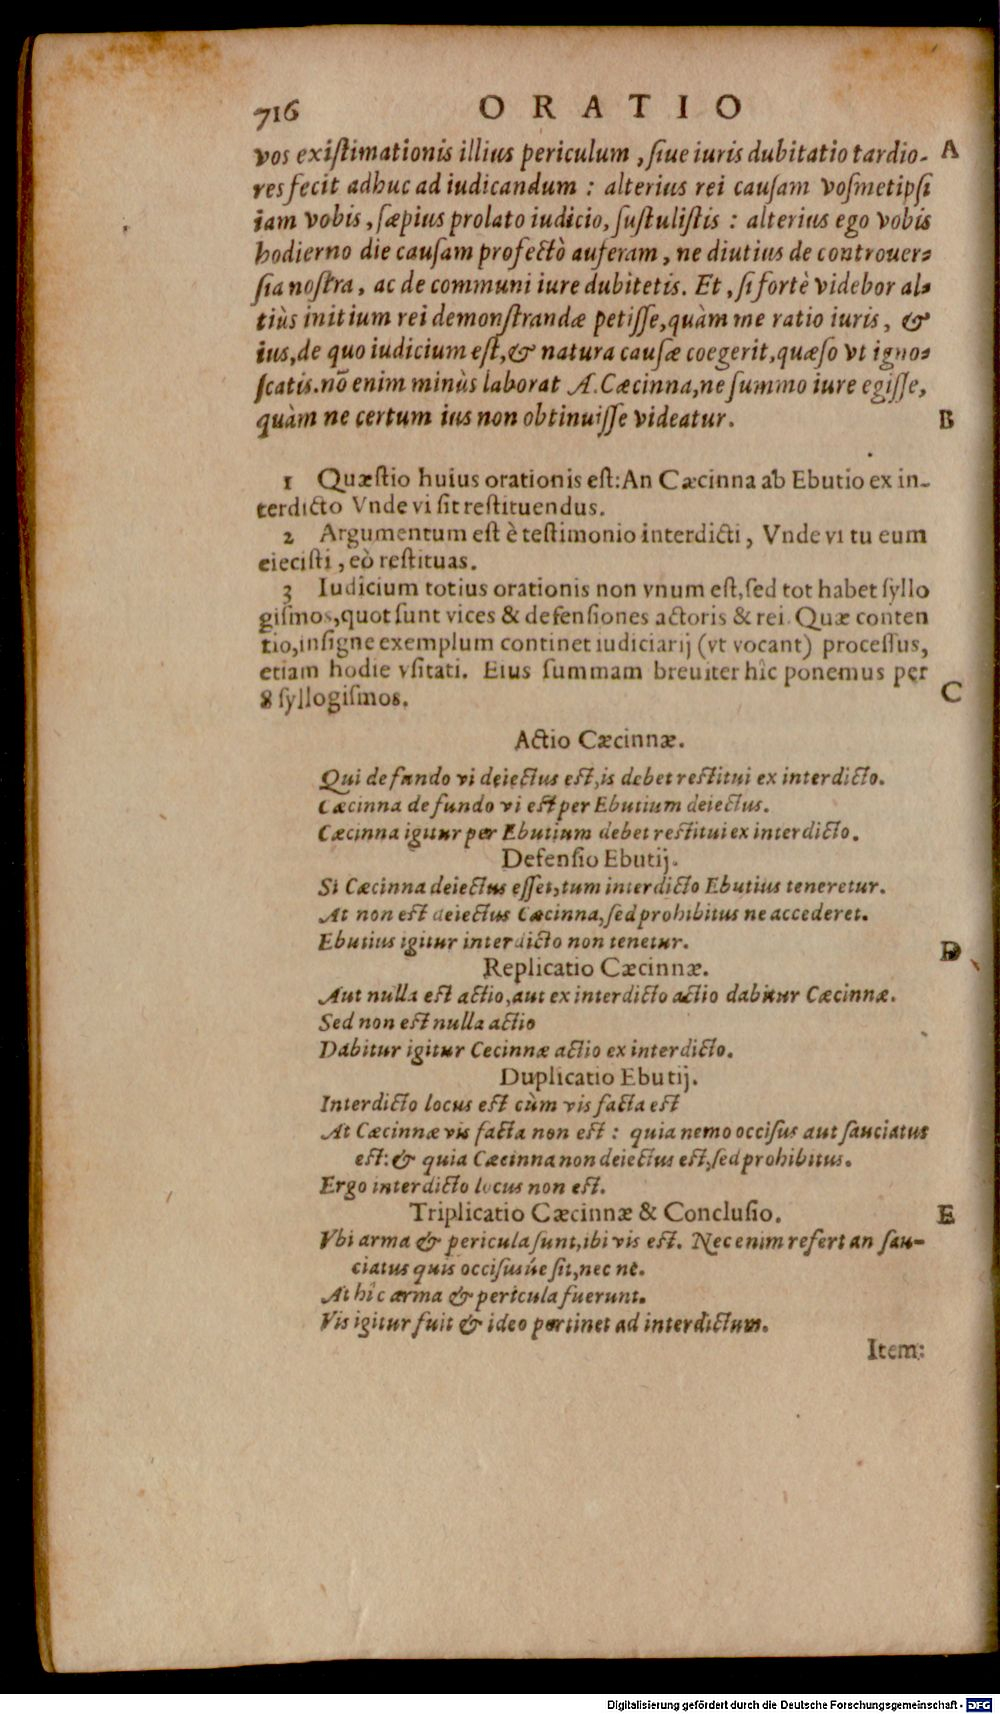 716 ORATIO
vos existimationis illius periculum, siue iuris dubitatio tardio- A
res fecit adhuc ad iudicandum : alterius rei causam vosmetipsi
iam vobis, sæpius prolato iudicio, sustulistis : alterius ego vobis
hodierno die causam profectò auferam, ne diutius de controuer-
sia nostra, ac de communi iure dubitetis. Et, si fortè videbor al-
tiùs initium rei demonstrandæ petisse, quàm me ratio iuris, &
ius, de quo iudicium est, & natura causæ coegerit, quæso vt igno-
scatis. nō enim minùs laborat A. Cæcinna, ne summo iure egisse,
quàm ne certum ius non obtinuisse videatur. B
1 Quæstio huius orationis est: An Cæcinna ab Ebutio ex in-
terdicto Vnde vi sit restituendus.
2 Argumentum est è testimonio interdicti, Vnde vi tu eum
eiecisti, eò restituas.
3 Iudicium totius orationis non vnum est, sed tot habet syllo
gismos, quot sunt vices & defensiones actoris & rei. Quæ conten
tio, insigne exemplum continet iudiciarij (vt vocant) processus,
etiam hodie vsitati. Eius summam breuiter hîc ponemus per
8 syllogismos. C
Actio Cæcinnæ.
Qui de fundo vi deiectus est, is debet restitui ex interdicto.
Cæcinna de fundo vi est per Ebutium deiectus.
Cæcinna igitur per Ebutium debet restitui ex interdicto.
Defensio Ebutij.
Si Cæcinna deiectus esset, tum interdicto Ebutius teneretur.
At non est deiectus Cæcinna, sed prohibitus ne accederet.
Ebutius igitur interdicto non tenetur. D
Replicatio Cæcinnæ.
Aut nulla est actio, aut ex interdicto actio dabitur Cæcinnæ.
Sed non est nulla actio
Dabitur igitur Cecinnæ actio ex interdicto.
Duplicatio Ebutij.
Interdicto locus est cùm vis facta est
At Cæcinnæ vis facta non est : quia nemo occisus aut sauciatus
est: & quia Cæcinna non deiectus est, sed prohibitus.
Ergo interdicto locus non est.
Triplicatio Cæcinnæ & Conclusio. E
Vbi arma & pericula sunt, ibi vis est. Nec enim refert an sau-
ciatus quis occisusúe sit, nec ne.
At hîc arma & pericula fuerunt.
Vis igitur fuit & ideo pertinet ad interdictum.
Item:
Digitalisierung gefördert durch die Deutsche Forschungsgemeinschaft - DFG